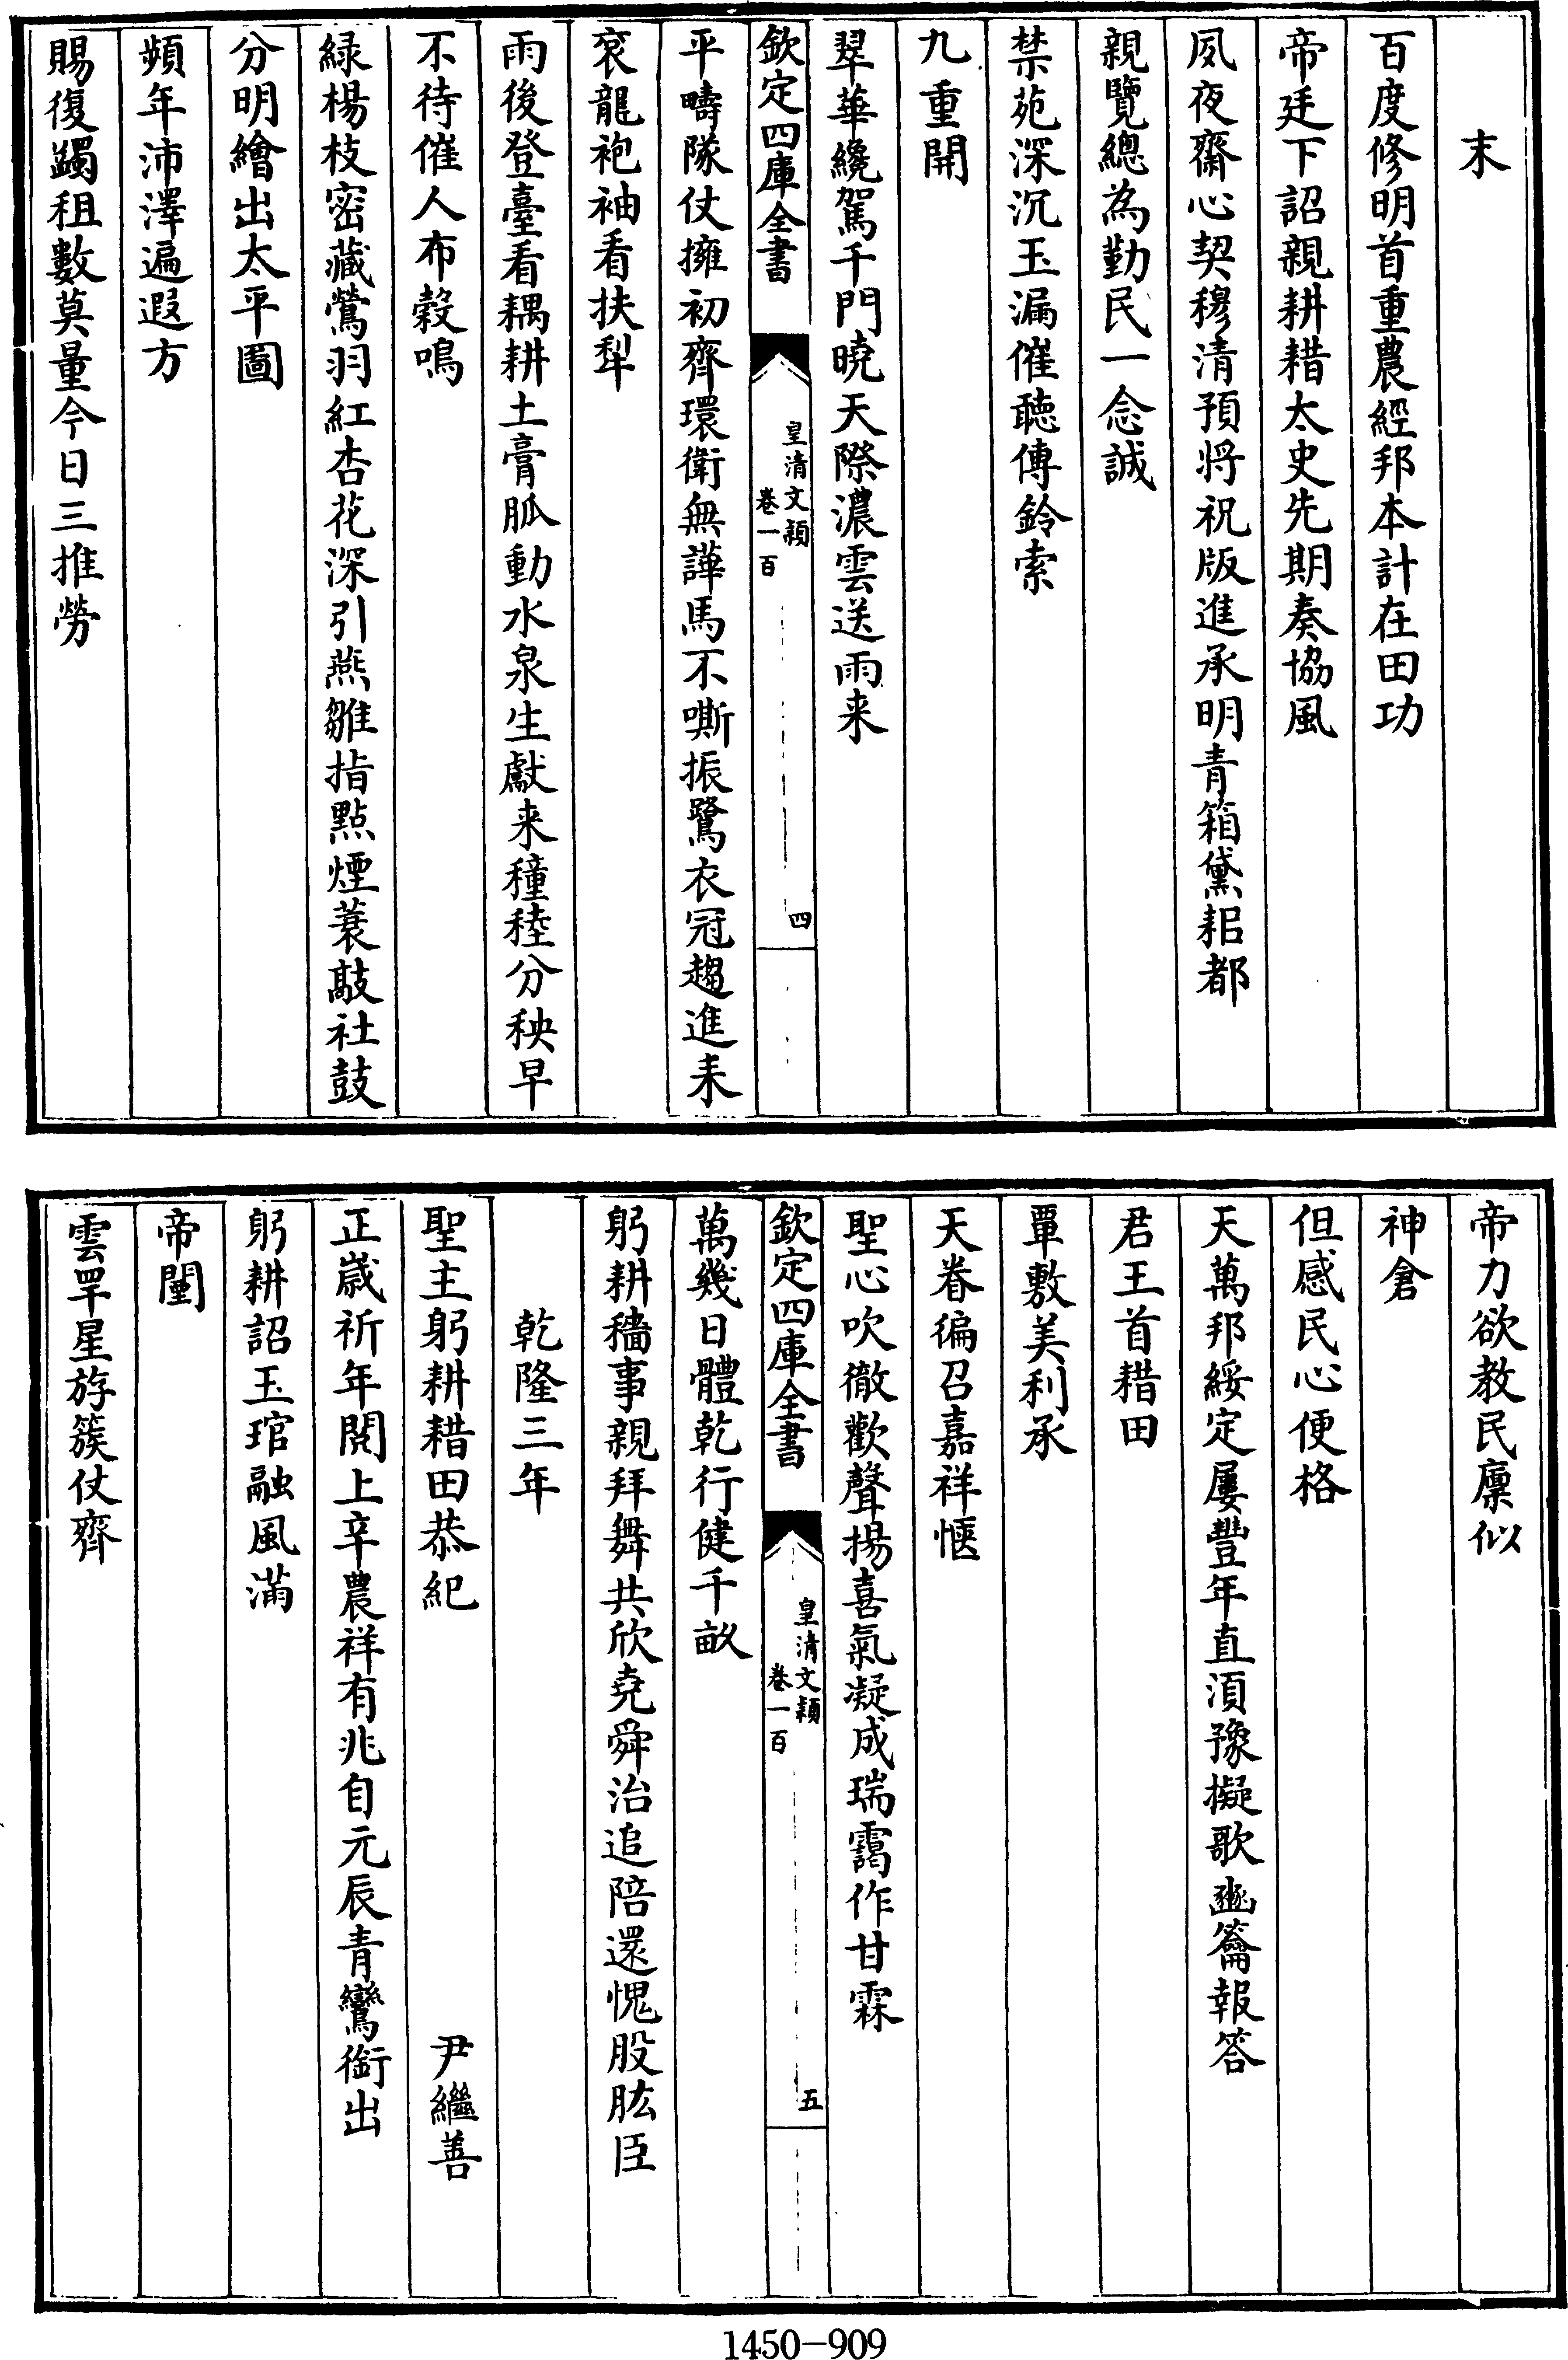 末
百度修明首重農經邦本計在田功
帝廷下詔親耕耤太史先期奏協風
夙夜齋心契穆清預將祝版進承明青箱黛耜都
親覽總為勤民一念誠
禁苑深沉玉漏催聽傳鈴索
九重開
翠華纔駕千門曉天際濃雲送雨来
欽定四庫全書
皇清文穎
卷一百
四
平疇隊仗擁初齊環衛無譁馬不嘶振鷺衣冠趨進耒
衮龍袍袖看扶犂
雨後登臺看耦耕土膏脈動水泉生獻来穜稑分秧早
不待催人布穀鳴
緑楊枝密藏鶯羽紅杏花深引燕雛指點煙蓑敲社鼓
分明繪出太平圖
頻年沛澤遍遐方
賜復蠲租數莫量今日三推勞
帝力欲教民廪似
神倉
但感民心便格
天萬邦綏定屢豐年直須豫擬歌豳籥報答
君王首耤田
覃敷美利承
天眷徧召嘉祥愜
聖心吹徹歡聲揚喜氣凝成瑞靄作甘霖
欽定四庫全書
皇清文穎
卷一百
五
萬幾日體乾行健千畝
躬耕穡事親拜舞共欣堯舜治追陪還愧股肱臣
乾隆三年
聖主躬耕耤田恭紀 尹繼善
正歲祈年閱上辛農祥有兆自元辰青鸞銜出
躬耕詔玉琯融風滿
帝闉
雲罕星斿簇仗齊
1450-909